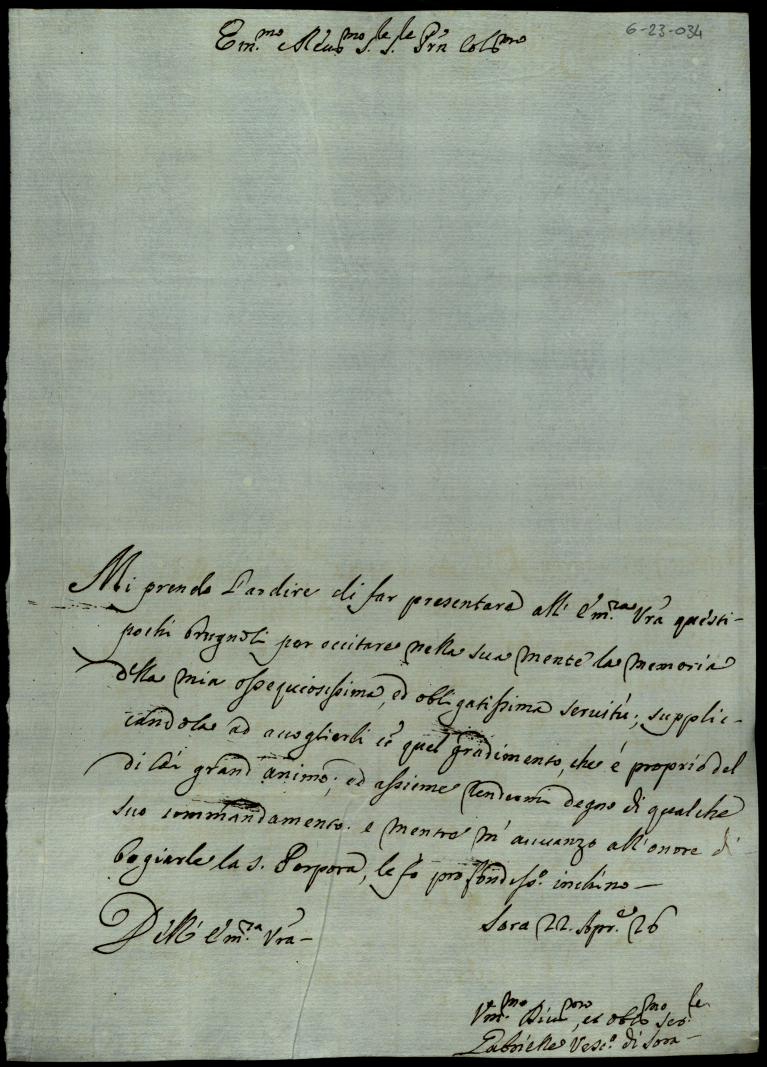 6-23-034
Em.mo e Reu.mo S.le S.le Prn Col.mo
Mi prendo l'ardire di far presentare all' Em.za Vra questi
pochi brugnoli per eccitare nella sua mente la memoria
della mia ossequiosissima, ed obligatissima seruitù; supplic-
candola ad accoglierli cō quel gradimento, che é proprio del
di Lei grand'animo; ed assieme rendermi degno di qualche
suo commandamento. e mentre m' auuanzo all'onore di
bagiarle la S. Porpora, le fo profondiss.o inchino—
Dell' Em.za Vra—
Sora 22. Apr.e 26
Vm.mo Diu.mo, et obb.mo Ser.le
Gabrielle Vesc.o di Sora—